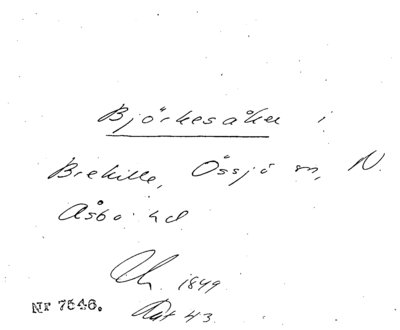 Björkesåker i
Brekille, Össjö sn, N.
Åsbo hd
1849
Nr 7546. Akt 43.